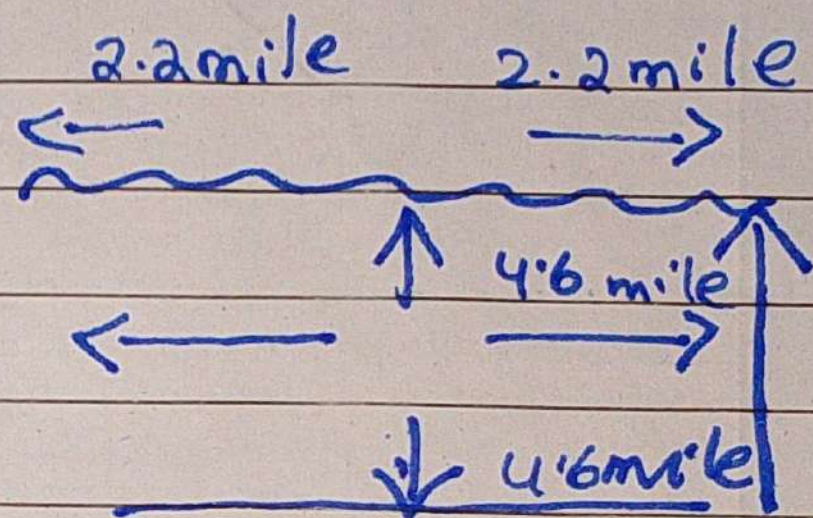 2.2mile 2.2mile
4.6.mile
4.6mile